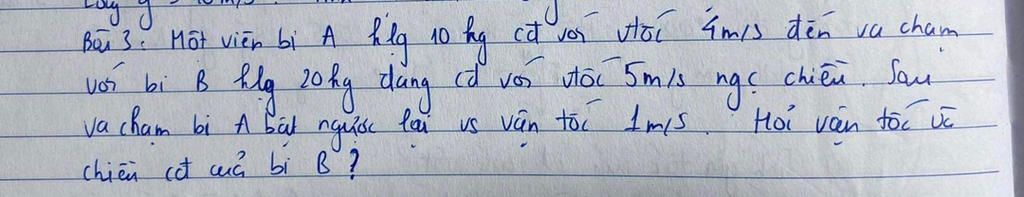 Lấy g = 10 m/s
Bài 3: Một viên bi A klg 10 kg cđ với vtốc 4m/s đến va chạm
với bi B klg 20kg đang cđ với vtốc 5m/s ngc chiều. Sau
va chạm bi A bật ngược lại vs vận tốc 1m/s. Hỏi vận tốc và
chiều cđ của bi B?